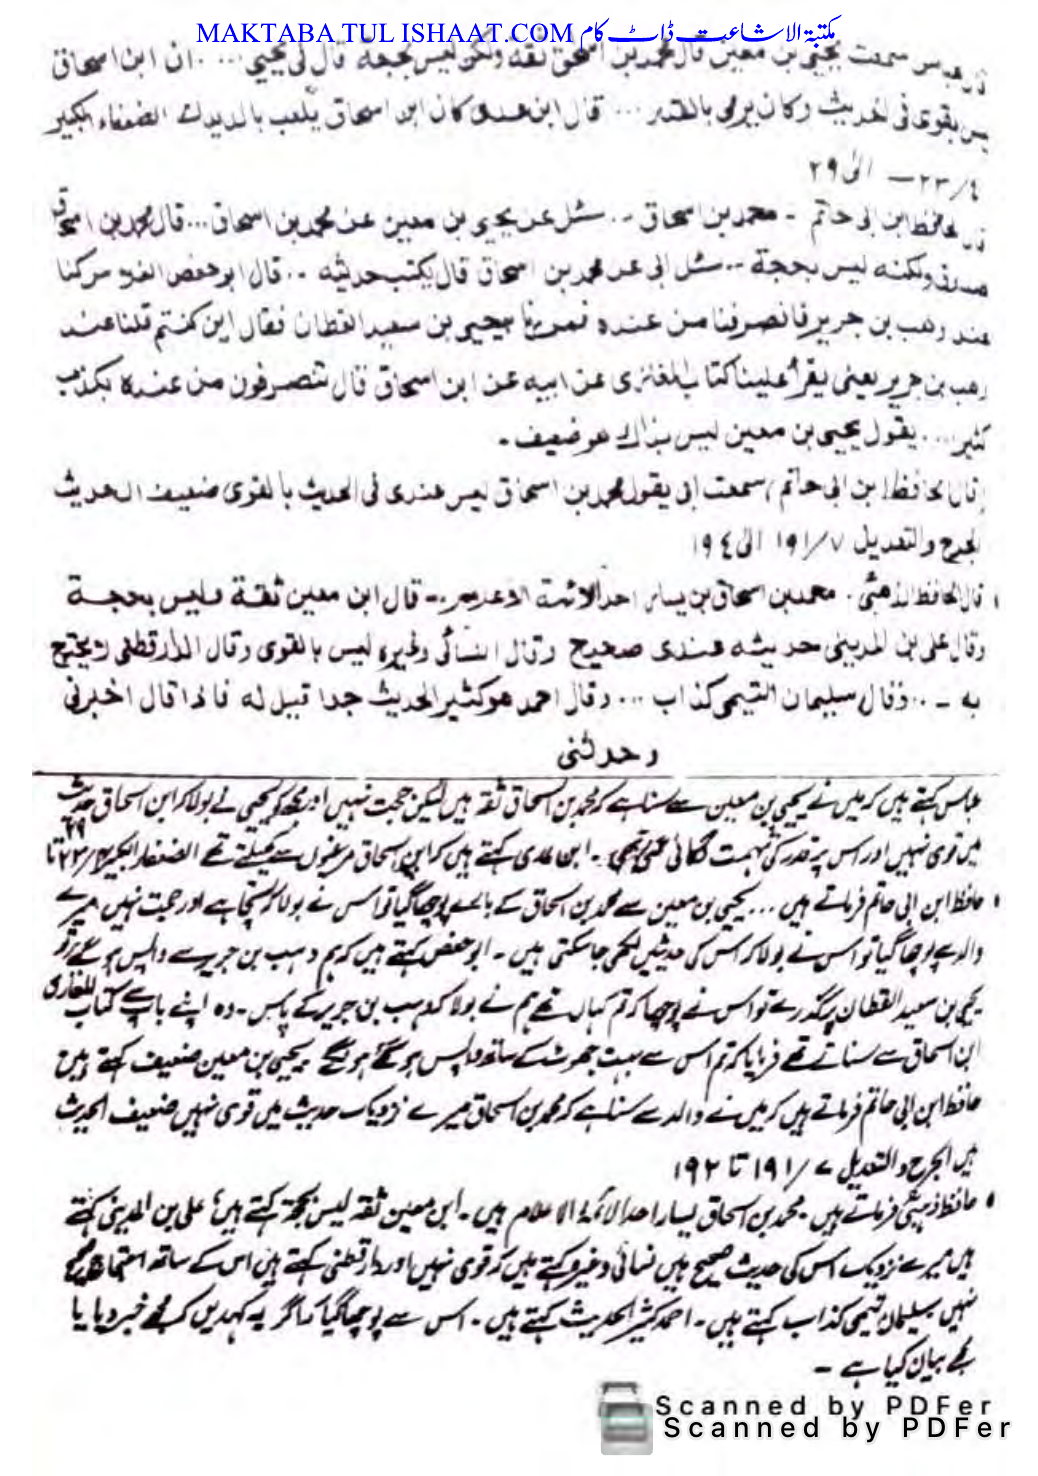 MAKTABA TUL ISHAAT.COM مکتبۃ الاشاعت ڈاٹ کام
سمعت يحيى بن معين قال محمد بن اسحاق ثقة ولكن ليس بحجة قال لى يحيى ... ان ابن اسحاق
ليس بقوى فى الحديث وكان يرمى بالقدر ... قال ابن عدى كان ابن اسحاق يلعب بالديوك الضعفاء الكبير
٤/٢٣ — الى ٢٩
قال الحافظ ابن ابى حاتم - محمد بن اسحاق .. سئل عن يحيى بن معين عن محمد بن اسحاق ... قال محمد بن اسحاق
صدوق ولكنه ليس بحجة .. سئل ابى عن محمد بن اسحاق قال يكتب حديثه .. قال ابو حفص الفلاس كنا
عند وهب بن جرير فانصرفنا من عنده فمررنا بيحيى بن سعيد القطان فقال اين كنتم قلنا عند
وهب بن جرير يعنى يقرأ علينا كتاب المغازى عن ابيه عن ابن اسحاق قال تنصرفون من عنده بكذب
كثير ... يقول يحيى بن معين ليس بذاك هو ضعيف -
(قال الحافظ ابن ابى حاتم) سمعت ابى يقول محمد بن اسحاق ليس عندى فى الحديث بالقوى ضعيف الحديث
الجرح والتعديل ٧/١٩١ الى ١٩٤
قال الحافظ الذهبى. محمد بن اسحاق بن يسار احد الائمة الاعلام - قال ابن معين ثقة وليس بحجة
وقال على بن المدينى حديثه عندى صحيح وقال النسائى وغيره ليس بالقوى وقال الدارقطنى لا يحتج
به - .. وقال سليمان التيمى كذاب ... وقال احمد هو كثير الحديث جدا قيل له فاذا قال اخبرنى
وحدثنى
عباس کہتے ہیں کہ میں نے یحییٰ بن معین سے سنا ہے کہ محمد بن اسحاق ثقہ ہیں لیکن حجت نہیں اور مجھ کو یحییٰ نے بولا کہ ابن اسحاق حدیث
میں قوی نہیں اور اس پر قدر کی تہمت لگائی گئی تھی - ابن عدی کہتے ہیں کہ ابن اسحاق مرغوں سے کھیلتے تھے الضعفاء الکبیر ٤/٢٣ تا ٢٩
حافظ ابن ابی حاتم فرماتے ہیں ... یحییٰ بن معین سے محمد بن اسحاق کے بارے پوچھا گیا تو اس نے بولا کہ سچا ہے اور حجت نہیں میرے
والد سے پوچھا گیا تو اس نے بولا کہ اس کی حدیثیں لکھی جا سکتی ہیں - ابو حفص کہتے ہیں کہ ہم وہب بن جریر سے واپس ہو گئے تو
یحییٰ بن سعید القطان پر گذرے تو اس نے پوچھا کہ تم کہاں تھے ہم نے بولا کہ وہب بن جریر کے پاس - وہ اپنے باپ سے کتاب المغازی
ابن اسحاق سے سناتے تھے فرمایا کہ تم اس سے بہت جھوٹ کے ساتھ واپس ہو گئے ہو گے یحییٰ بن معین ضعیف کہتے ہیں
حافظ ابن ابی حاتم فرماتے ہیں کہ میں نے والد سے سنا ہے کہ محمد بن اسحاق میرے نزدیک حدیث میں قوی نہیں ضعیف الحدیث
ہیں الجرح والتعدیل ٧/١٩١ تا ١٩٢
حافظ ذہبی فرماتے ہیں محمد بن اسحاق یسار احد الائمة الاعلام ہیں - ابن معین ثقہ لیس بحجۃ کہتے ہیں، علی بن المدینی کہتے
ہیں میرے نزدیک اس کی حدیث صحیح ہیں نسائی وغیرہ کہتے ہیں کہ قوی نہیں اور دارقطنی کہتے ہیں اس کے ساتھ احتجاج صحیح
نہیں سلیمان تیمی کذاب کہتے ہیں - احمد کثیر الحدیث کہتے ہیں - اس سے پوچھا گیا کہ اگر یہ کہدیں کہ مجھے خبر دیا یا
مجھے بیان کیا ہے -
Scanned by PDFer
Scanned by PDFer